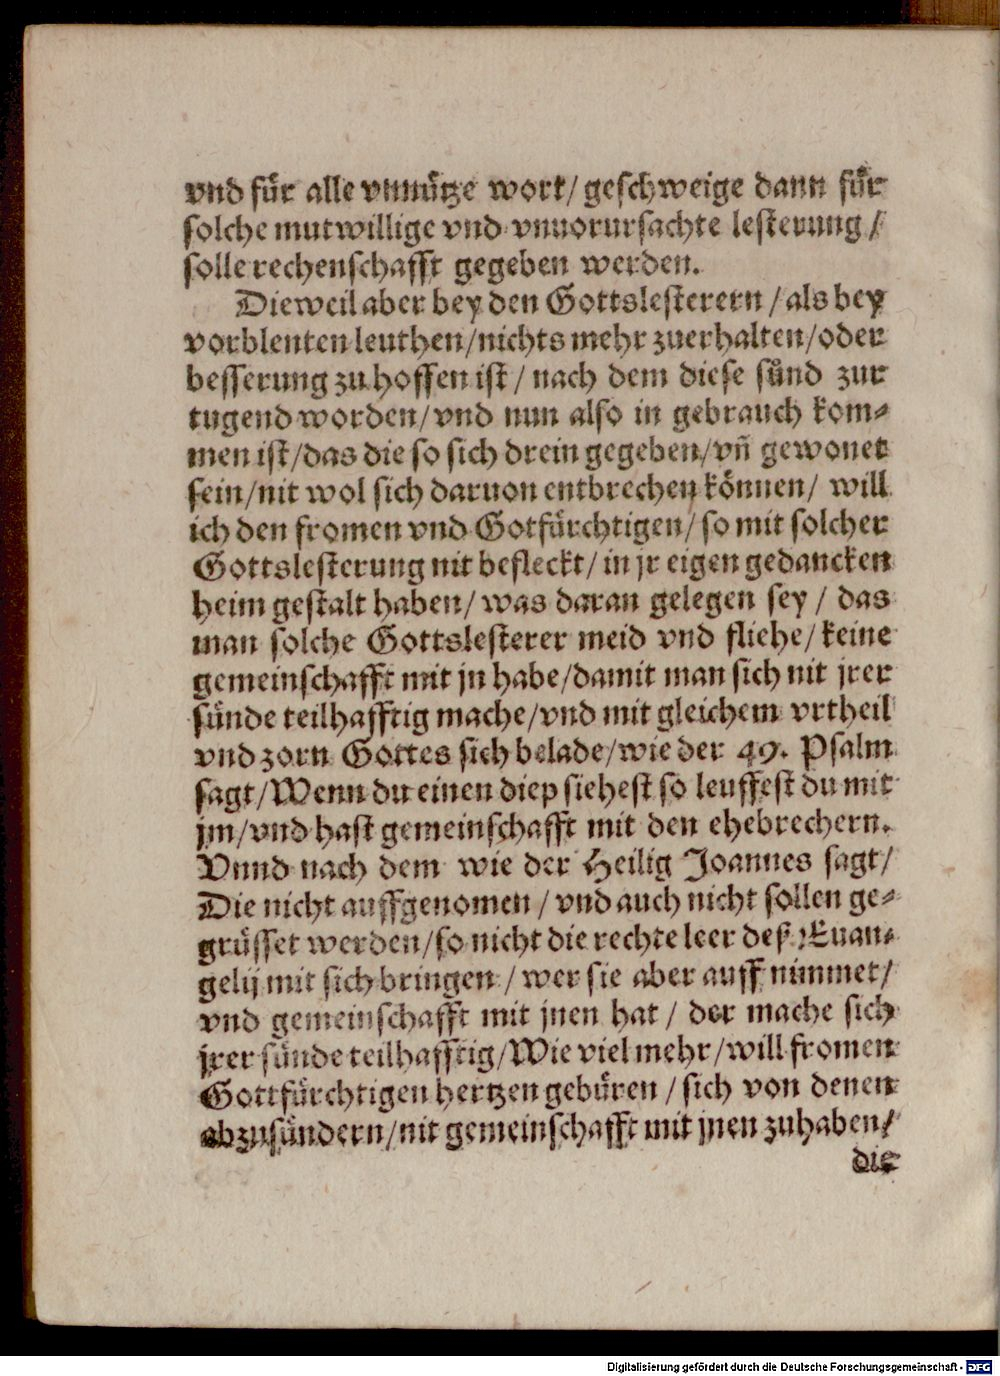 vnd für alle vnnütze wort/ geschweige dann für
solche mutwillige vnd vnuorursachte lesterung /
solle rechenschafft gegeben werden.
Dieweil aber bey den Gottslesterern / als bey
vorblenten leuthen/nichts mehr zuerhalten/oder
besserung zu hoffen ist / nach dem diese sünd zur
tugend worden/vnd nun also in gebrauch kom-
men ist/das die so sich drein gegeben/vñ gewonet
sein/nit wol sich daruon entbrechen können/ will
ich den fromen vnd Gotfürchtigen/ so mit solcher
Gottslesterung nit befleckt/ in jr eigen gedancken
heim gestalt haben/ was daran gelegen sey / das
man solche Gottslesterer meid vnd fliehe/ keine
gemeinschafft mit jn habe/damit man sich nit jrer
sünde teilhafftig mache/vnd mit gleichem vrtheil
vnd zorn Gottes sich belade/wie der 49. Psalm
sagt/Wenn du einen diep siehest so leuffest du mit
jm/vnd hast gemeinschafft mit den ehebrechern.
Vnnd nach dem wie der Heilig Joannes sagt/
Die nicht auffgenomen / vnd auch nicht sollen ge-
grüsset werden/so nicht die rechte leer deß Euan-
gelij mit sich bringen / wer sie aber auff nimmet/
vnd gemeinschafft mit jnen hat / der mache sich
jrer sünde teilhafftig/Wie viel mehr/will fromen
Gottfürchtigen hertzen gebüren / sich von denen
abzusündern/nit gemeinschafft mit jnen zuhaben/
die
Digitalisierung gefördert durch die Deutsche Forschungsgemeinschaft - DFG